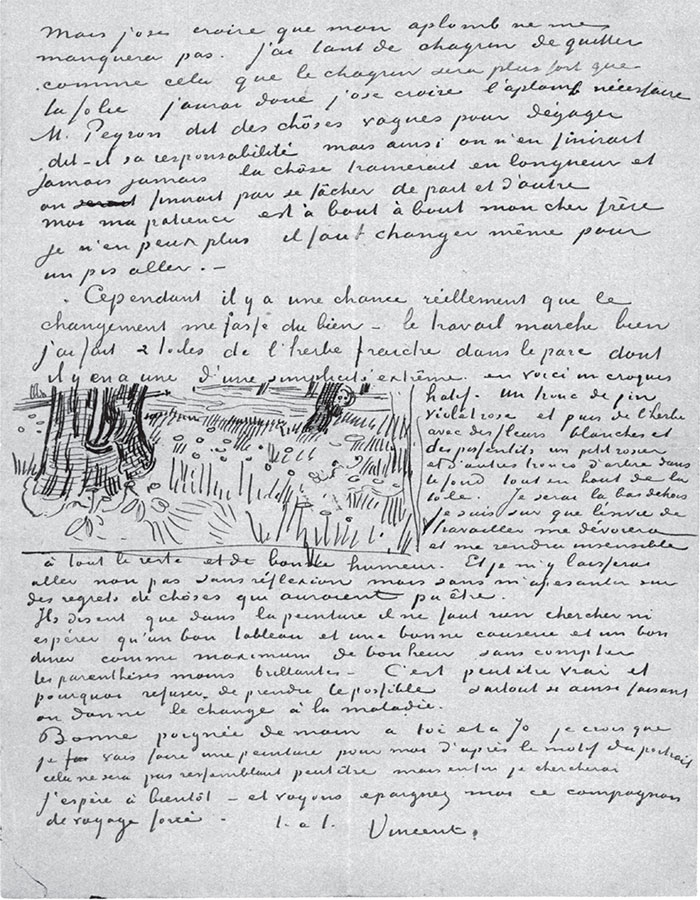 Mais j'ose croire que mon aplomb ne me
manquera pas. j'ai tant de chagrin de quitter
comme cela que le chagrin sera plus fort que
la folie j'aurai donc j'ose croire l'aplomb nécessaire
M. Peyron dit des chôses vagues pour dégager
dit-il sa responsabilité mais ainsi on n'en finirait
jamais jamais la chôse trainerait en longueur et
on finirait par se fâcher de part et d'autre
moi ma patience est à bout à bout mon cher frère
je n'en peux plus il faut changer même pour
un pis aller. —
Cependant il y a une chance réellement que le
changement me fasse du bien – le travail marche bien
j'ai fait 2 toiles de l'herbe fraiche dans le parc dont
il y en a une d'une simplicité extrême. en voici un croquis
hatif. Un tronc de pin
violet rose et puis de l'herbe
avec des fleurs blanches et
des pissenlits un petit rosier
et d'autres troncs d'arbre dans
le fond tout en haut de la
toile. Je serai là bas dehors
je suis sur que l'envie de
travailler me dévorera
et me rendra insensible
à tout le reste et de bonne humeur. Et je m'y laisserai
aller non pas sans réflexion mais sans m'apesantir sur
des regrets de chôses qui auraient pu être.
Ils disent que dans la peinture il ne faut rien chercher ni
espérer qu'un bon tableau et une bonne causerie et un bon
diner comme maximum de bonheur sans compter
les parenthèses moins brillantes – C'est peutêtre vrai et
pourquoi refuser de prendre le possible surtout si ainsi faisant
on donne le change à la maladie.
Bonne poignée de main à toi et à Jo je crois que
je vais faire une peinture pour moi d'après le motif du portrait
cela ne sera pas ressemblant peutêtre mais enfin je chercherai
j'espère à bientôt – et voyons epargnez moi ce compagnon
de voyage forcé. t. à t. Vincent.